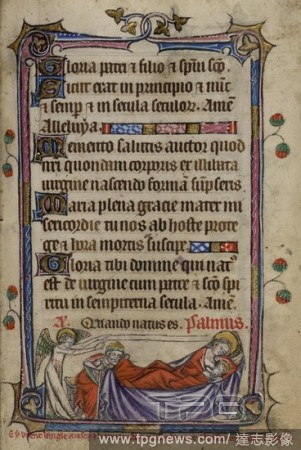 Gloria patri et filio et spiui sco.
Sicut erat in principio et nuc
et semp et in secula seculoꝝ. Ame
Alleluya.
Memento salutis auctor quod
nri quondam corporis ex illibata
uirgine nascendo formā sūpseris.
Maria plena gracie mater mi
sericordie tu nos ab hoste prote
ge et hora mortis suscipe.
Gloria tibi domine qui nat᷒
est de uirgine cum patre et sco spi
ritu in sempiterna secula. Ame.
A. Quando natus es. Psalmus.
TPG
www.tpgnews.com/ 達志影像